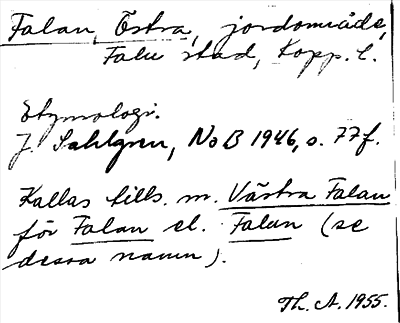 Falan, Östra, jordområde,
Falu stad, Kopp. l.
Etymologi.
J. Sahlgren, NoB 1946, s. 77f.
Kallas tills. m. Västra Falan
för Falan el. Falun (se
dessa namn).
Th. A. 1955.